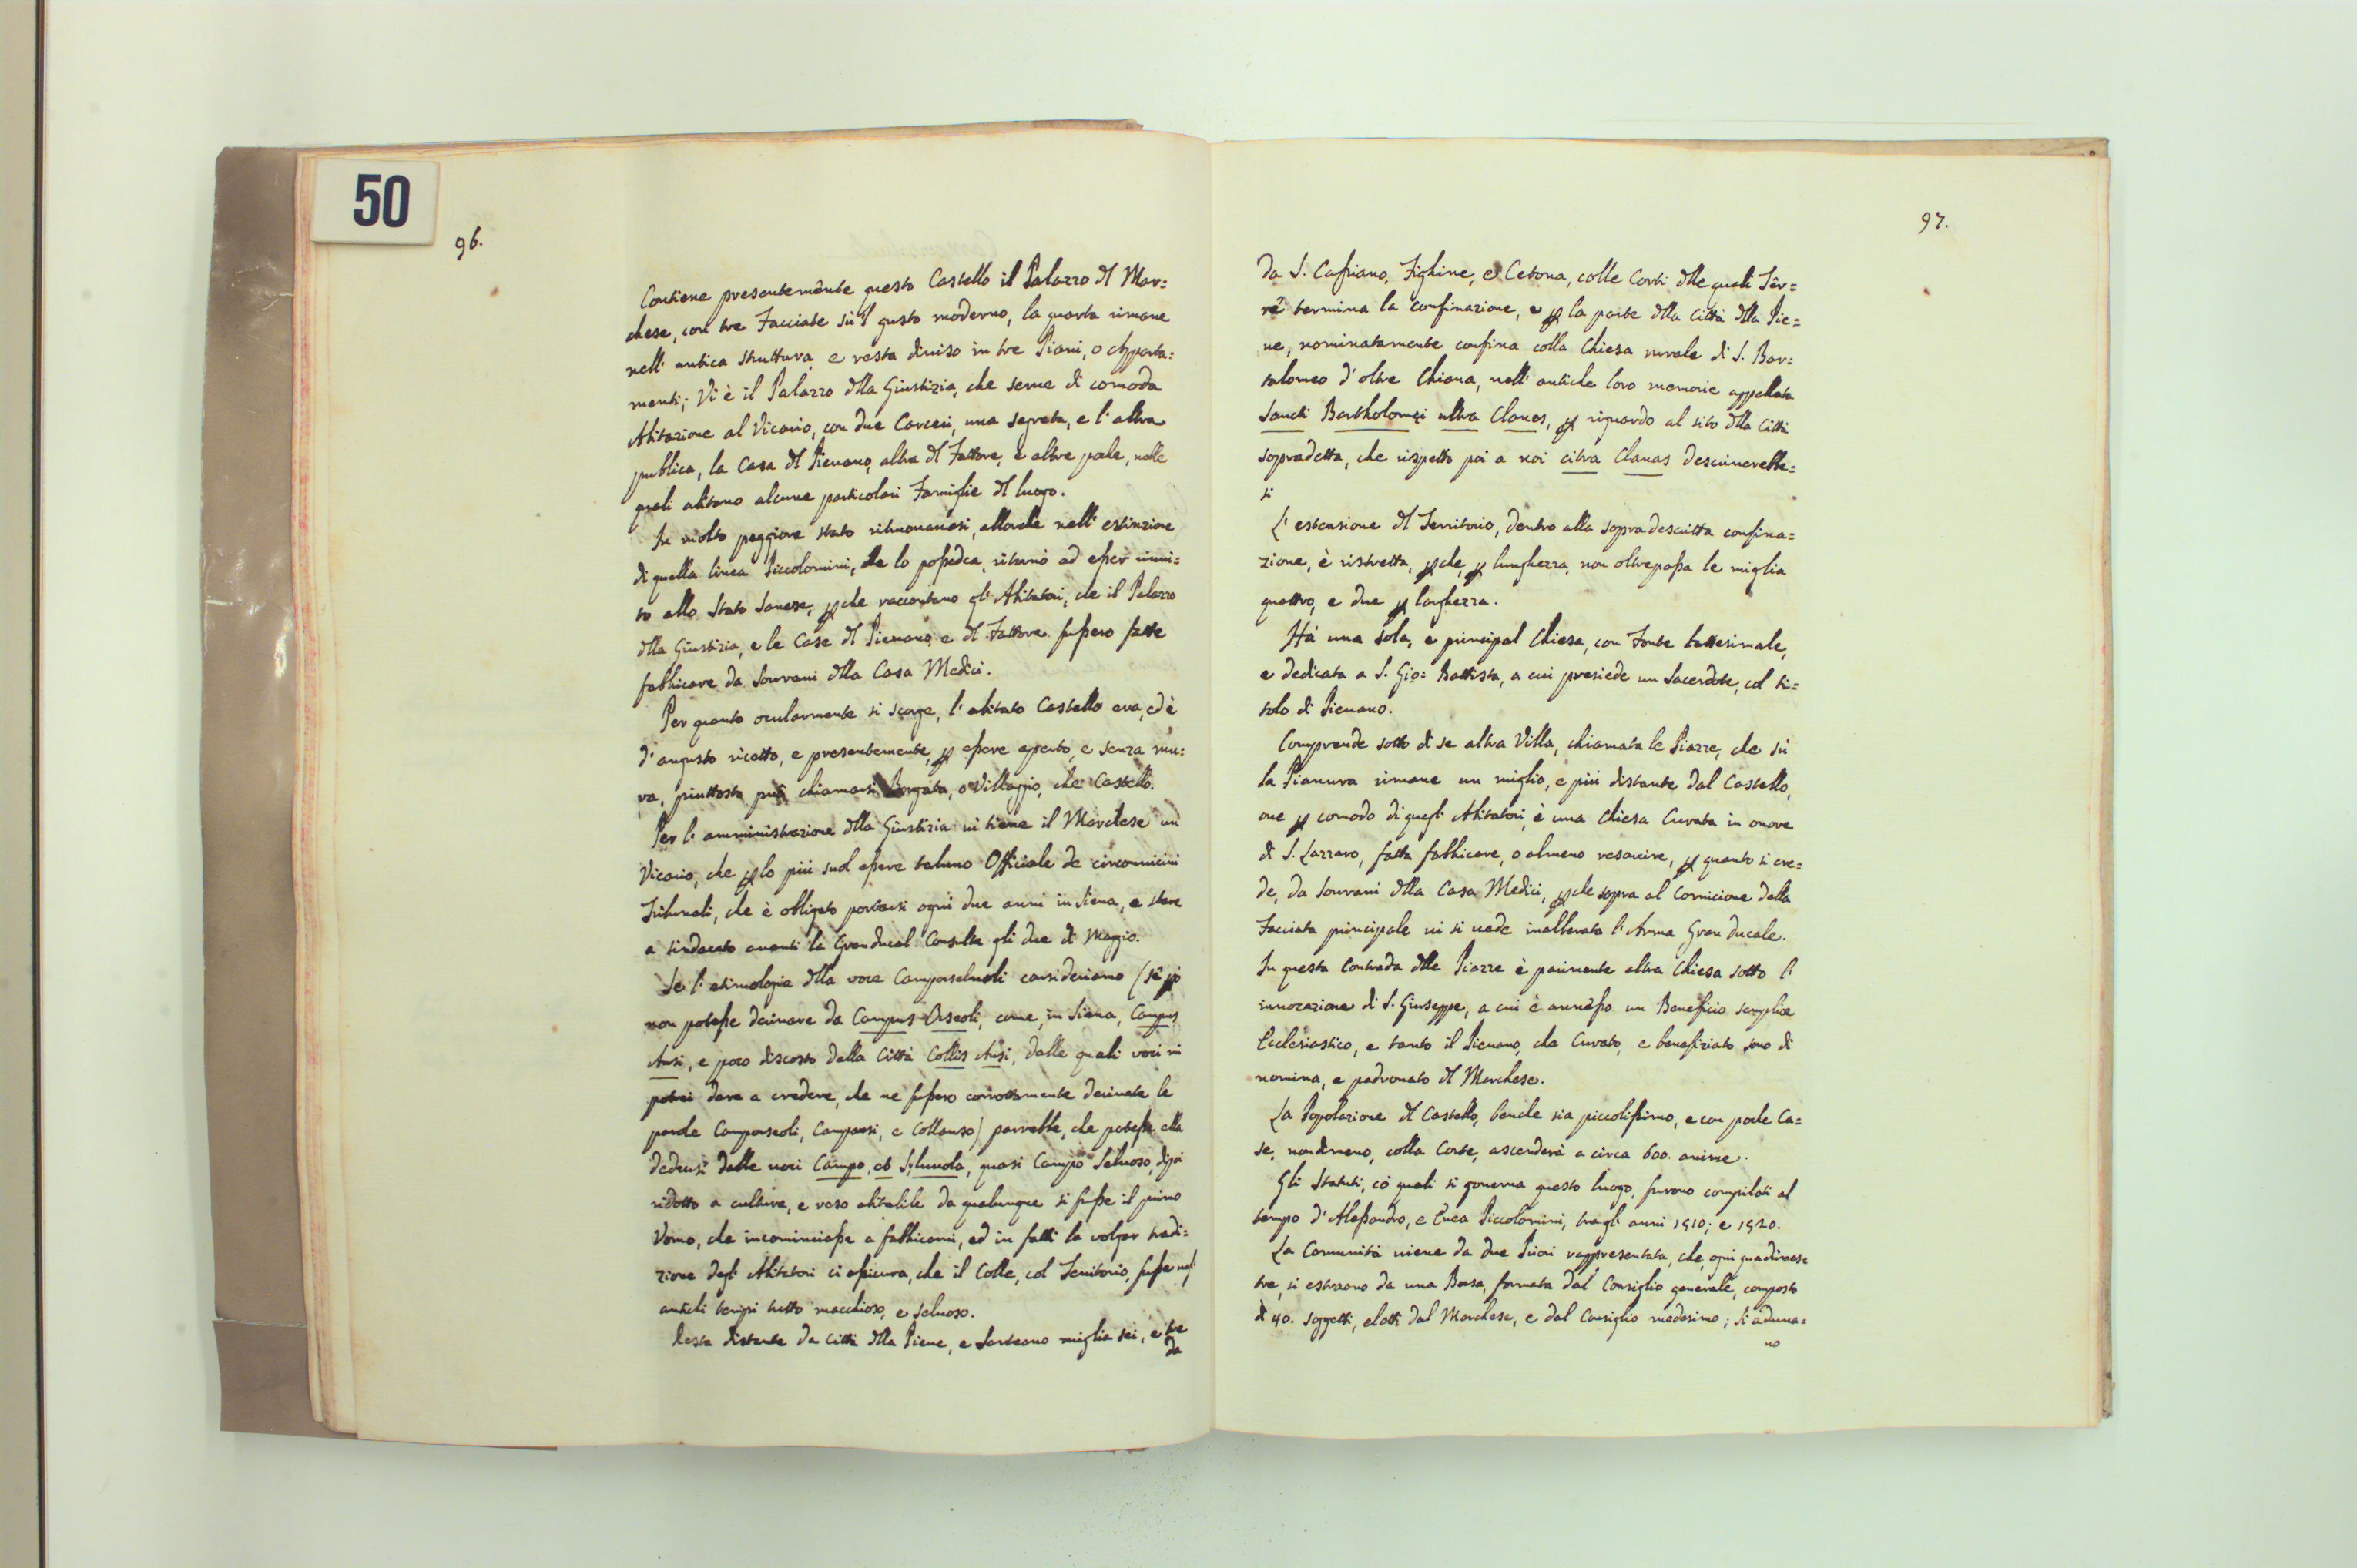 50
96.
Contiene presentemente questo Castello il Palazzo dl Mar=
chese, con tre Facciate sù 'l gusto moderno, la quarta rimane
nell' antica struttura, e resta diviso in tre Piani, o Apparta=
menti; Vi è il Palazzo dlla Giustizia, che serve di comoda
Abitazione al Vicario, con due Carceri, una segreta, e l' altra
publica, la Casa dl Pievano, altra dl Fattore, e altre poche, nelle
quali abitano alcune particolari Famiglie dl luogo.
In molto peggiore stato ritrovavasi, allorche nell' estinzione
di quella linea Piccolomini, che lo possedea, ritornò ad esser riuni=
to allo Stato Sanese, pche raccontano gl' Abitatori, che il Palazzo
dlla Giustizia, e le Case dl Pievano, e dl Fattore fussero fatte
fabbricare da Sovrani dlla Casa Medici.
Per quanto ocularmente si scorge, l' abitato Castello era, ed è
d' angusto ricetto, e presentemente, p essere aperto, e senza mu=
ra, piuttosto può chiamarsi Borgata, o Villaggio, che Castello.
Per l' amministrazione dlla Giustizia vi tiene il Marchese un
Vicario, che p lo più suol essere taluno Officiale de circonvicini
Tribunali, che è obligato portarsi ogni due anni in Siena, e stare
a sindacato avanti la Gran Ducal Consulta gli due di Maggio.
Se l' etimologia dlla voce Camporselvoli consideriamo (se pò
non potesse derivare da Campus Orseoli, come, in Siena, Campus
Ansi, e poco discosto dalla Città Collis Ansi, dalle quali voci mi
potrei dare a credere, che ne fussero corrottamente derivate le
parole Camporseoli, Campansi, e Collanso) parrebbe, che potesse ella
dedursi dalle voci Campo, et Sylvuola, quasi Campo Selvoso, dipoi
ridotto a cultura, e reso abitabile da qualunque si fusse il primo
Uomo, che incominciasse a fabbricarvi, ed in fatti la volgar tradi=
zione degl' Abitatori ci assicura, che il Colle, col Territorio, fusse negl'
antichi tempi tutto macchioso, e selvoso.
Resta distante da Città dlla Pieve, e Sarteano miglia sei, e tre
da
97.
da S. Casciano, Fighine, e Cetona, colle Corti dlle quali Ter=
re termina la confinazione, e p la parte dlla Città dlla Pie=
ve, nominatamente confina colla Chiesa rurale di S. Bar=
talomeo d' oltre Chiana, nell' antiche loro memorie appellata
Sancti Bartholomęi ultra Clanas, p riguardo al sito dlla Città
sopradetta, che rispetto poi a noi citra Clanas descriverebbe=
si
L' estensione dl Territorio, dentro alla sopradescritta confina=
zione, è ristretta, pche, p lunghezza, non oltrepassa le miglia
quattro, e due p larghezza.
Hà una sola, e principal Chiesa, con Fonte battesimale,
e dedicata a S. Gio: Battista, a cui presiede un Sacerdote, col ti=
tolo di Pievano.
Comprende sotto di se altra Villa, chiamata le Piazze, che sù
la Pianura rimane un miglio, e più distante dal Castello,
ove p comodo di quegl' Abitatori, è una Chiesa Curata in onore
di S. Lazzaro, fatta fabbricare, o almeno resarcire, p quanto si cre=
de, da Sovrani dlla Casa Medici, pche sopra al Cornicione della
Facciata principale vi si vede inalberata l' Arma Gran Ducale.
In questa Contrada dlle Piazze è parimente altra Chiesa sotto l'
invocazione di S. Giuseppe, a cui è annesso un Beneficio semplice
Ecclesiastico, e tanto il Pievano, che Curato, e benefiziato sono di
nomina, e padronato dl Marchese.
La Popolazione dl Castello, benche sia piccolissimo, e con poche Ca=
se, nondimeno, colla Corte, ascenderà a circa 600. anime.
Gli Statuti, cò quali si governa questo luogo, furono compilati al
tempo d' Alessandro, e Enea Piccolomini, tragl' anni 1510; e 1520.
La Comunità viene da due Priori rappresentata, che, ogni quadrimes=
tre, si estraono da una Borsa, formata dal Consiglio generale, composto
di 40. soggetti, eletti dal Marchese, e dal Consiglio medesimo; Si aduna=
no